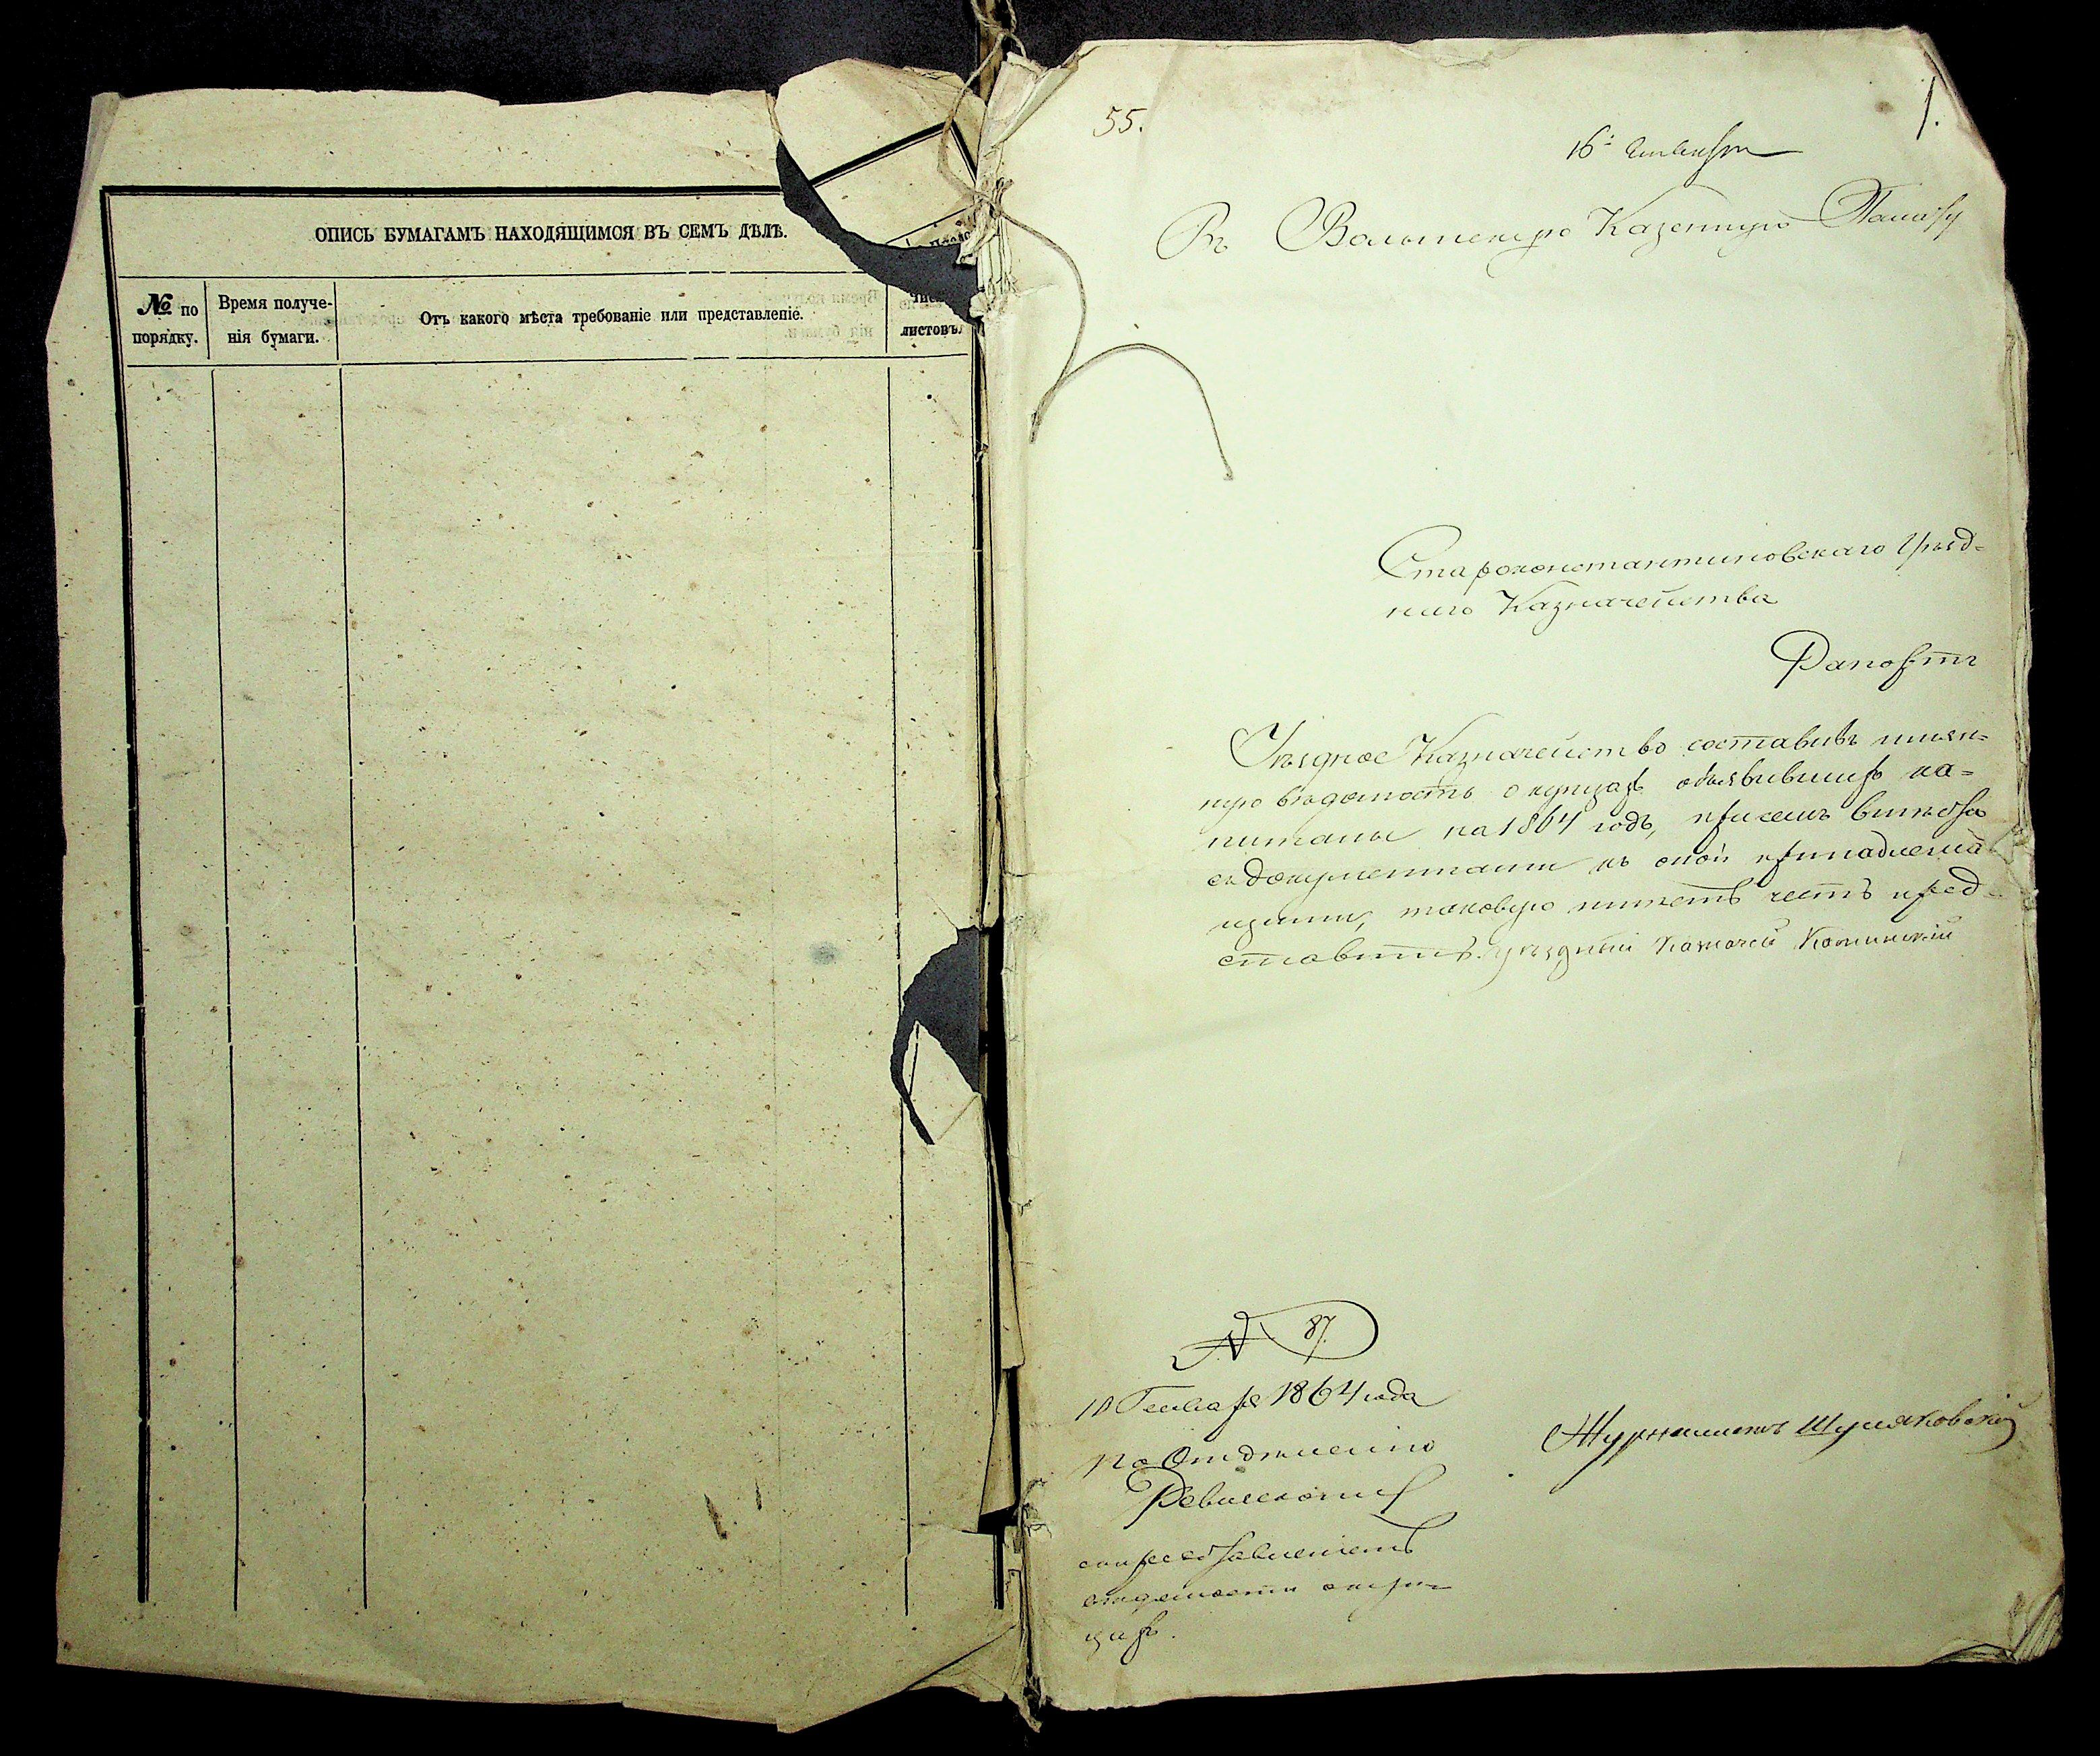 ОПИСЬ БУМАГАМЪ НАХОДЯЩИМСЯ ВЪ СЕМЪ ДѢЛѢ.
№ по порядку.
Время получе-
нія бумаги.
Отъ какого мѣста требованіе или представленіе.
листовъ.
55.
1.
16 Генваря
Въ Волынскую Казенную Палату
Староконстантиновскаго Уѣзд-
наго Казначейства
Рапортъ
Уѣздное Казначейство составивъ имян-
ную вѣдомость о купцахъ объявившихъ ка-
питалы на 1864 годъ, при семъ вмѣстѣ
съ документами къ оной принадлежа-
щими, таковую имѣетъ честь пред-
ставить. Уѣздный Казначей
№ 87.
10 Генваря 1864 года
По Отдѣленію
Ревизскому
съ представленіемъ
вѣдомости о куп-
цахъ.
Журналистъ Шумяковскій